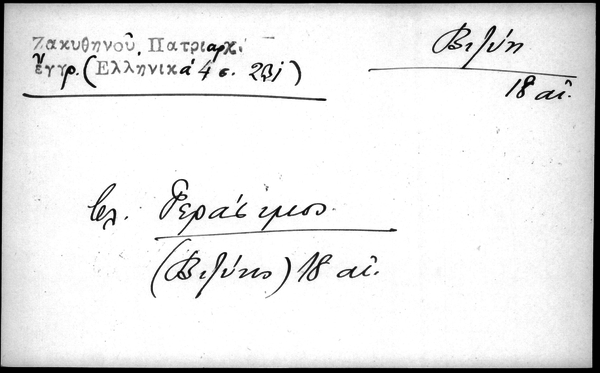 Ζακυθηνοῦ, Πατριαρχ.
ἔγγρ. (Ἑλληνικά 4 σ.
Βιζύη
18 αἰ.
βλ. Γεράσιμος
(Βιζύης) 18 αἰ.